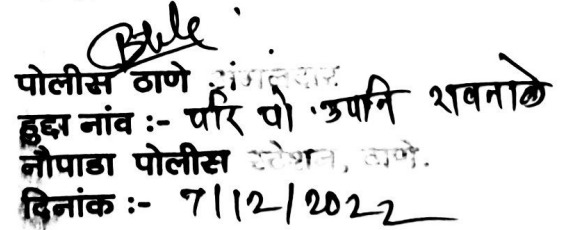 पोलीस ठाणे अंमलदार
हुद्दा नांव :- परि पो उपनि रावताळे
नौपाडा पोलीस स्टेशन, ठाणे.
दिनांक :- 7/12/2022